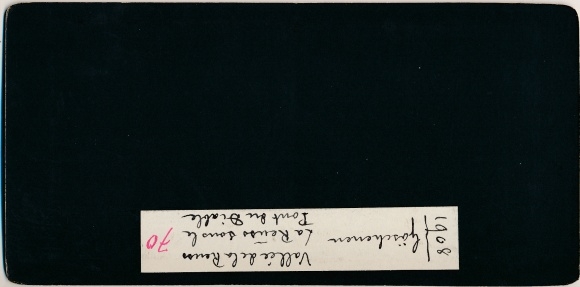 1908
Göschenen
Vallée de la Reuss
La Reuss sous le
Pont du Diable
70